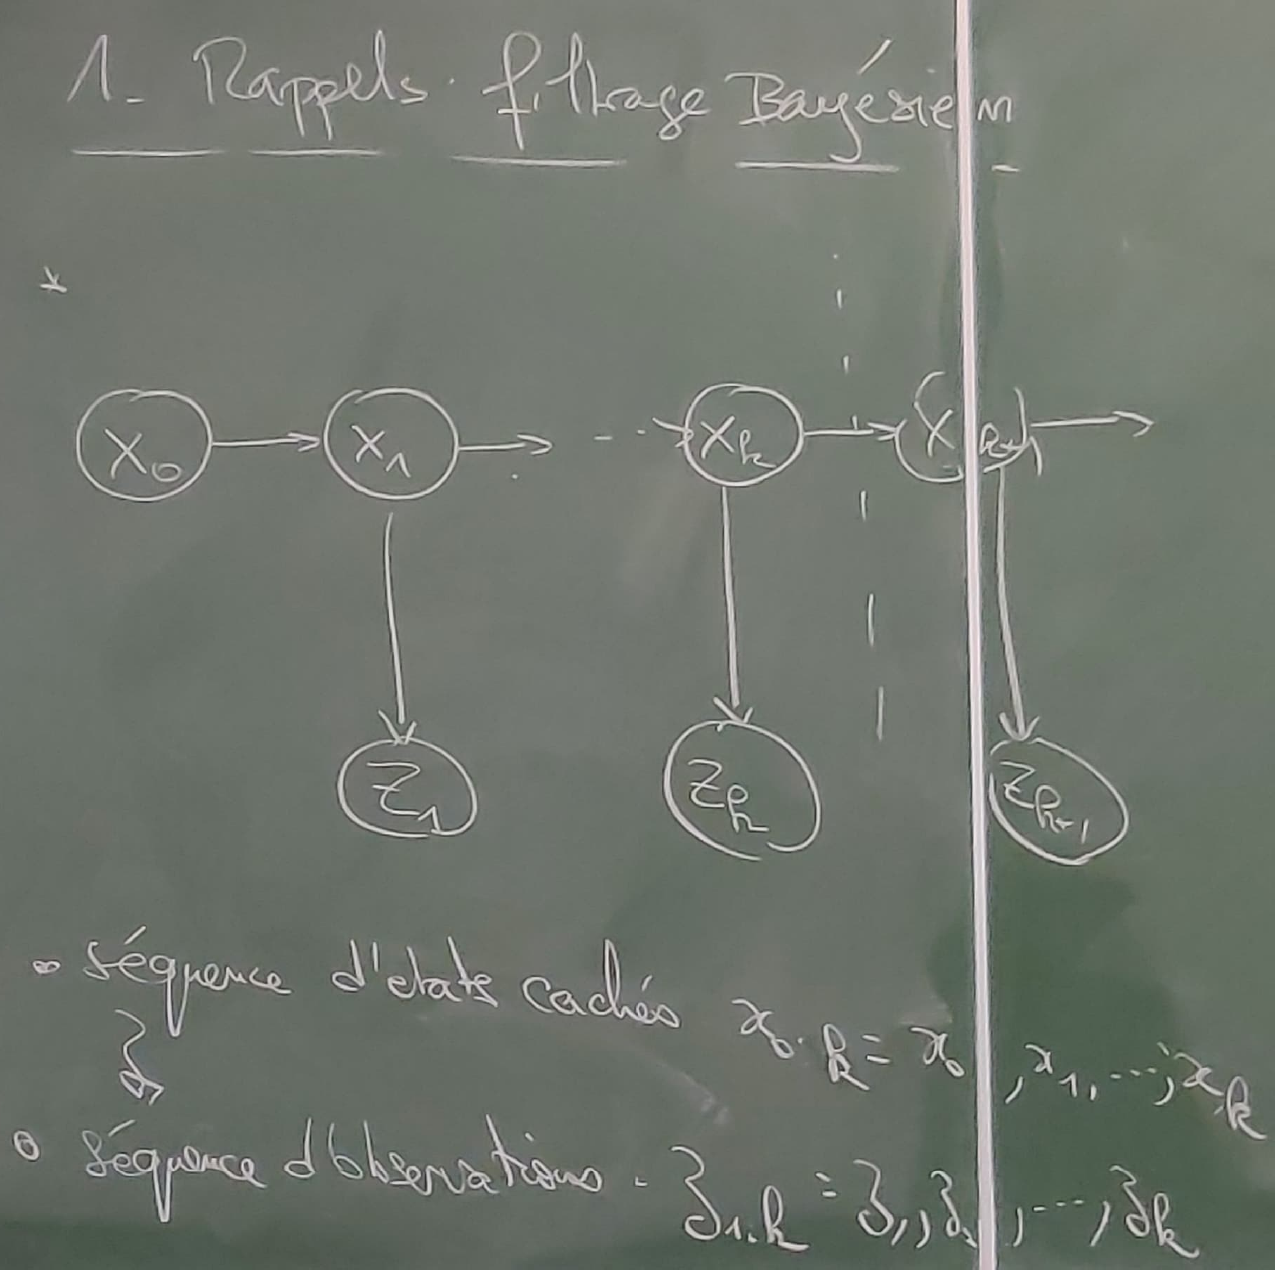 1. Rappels : filtrage Bayésien
*
X₀ X₁ X_k X_{k+1}
Z₁ Z_k Z_{k+1}
• séquence d'etats cachés x_{0:k} = x₀, x₁, ..., x_k
• séquence d'observations : z_{1:k} = z₁, z₂, ..., z_k